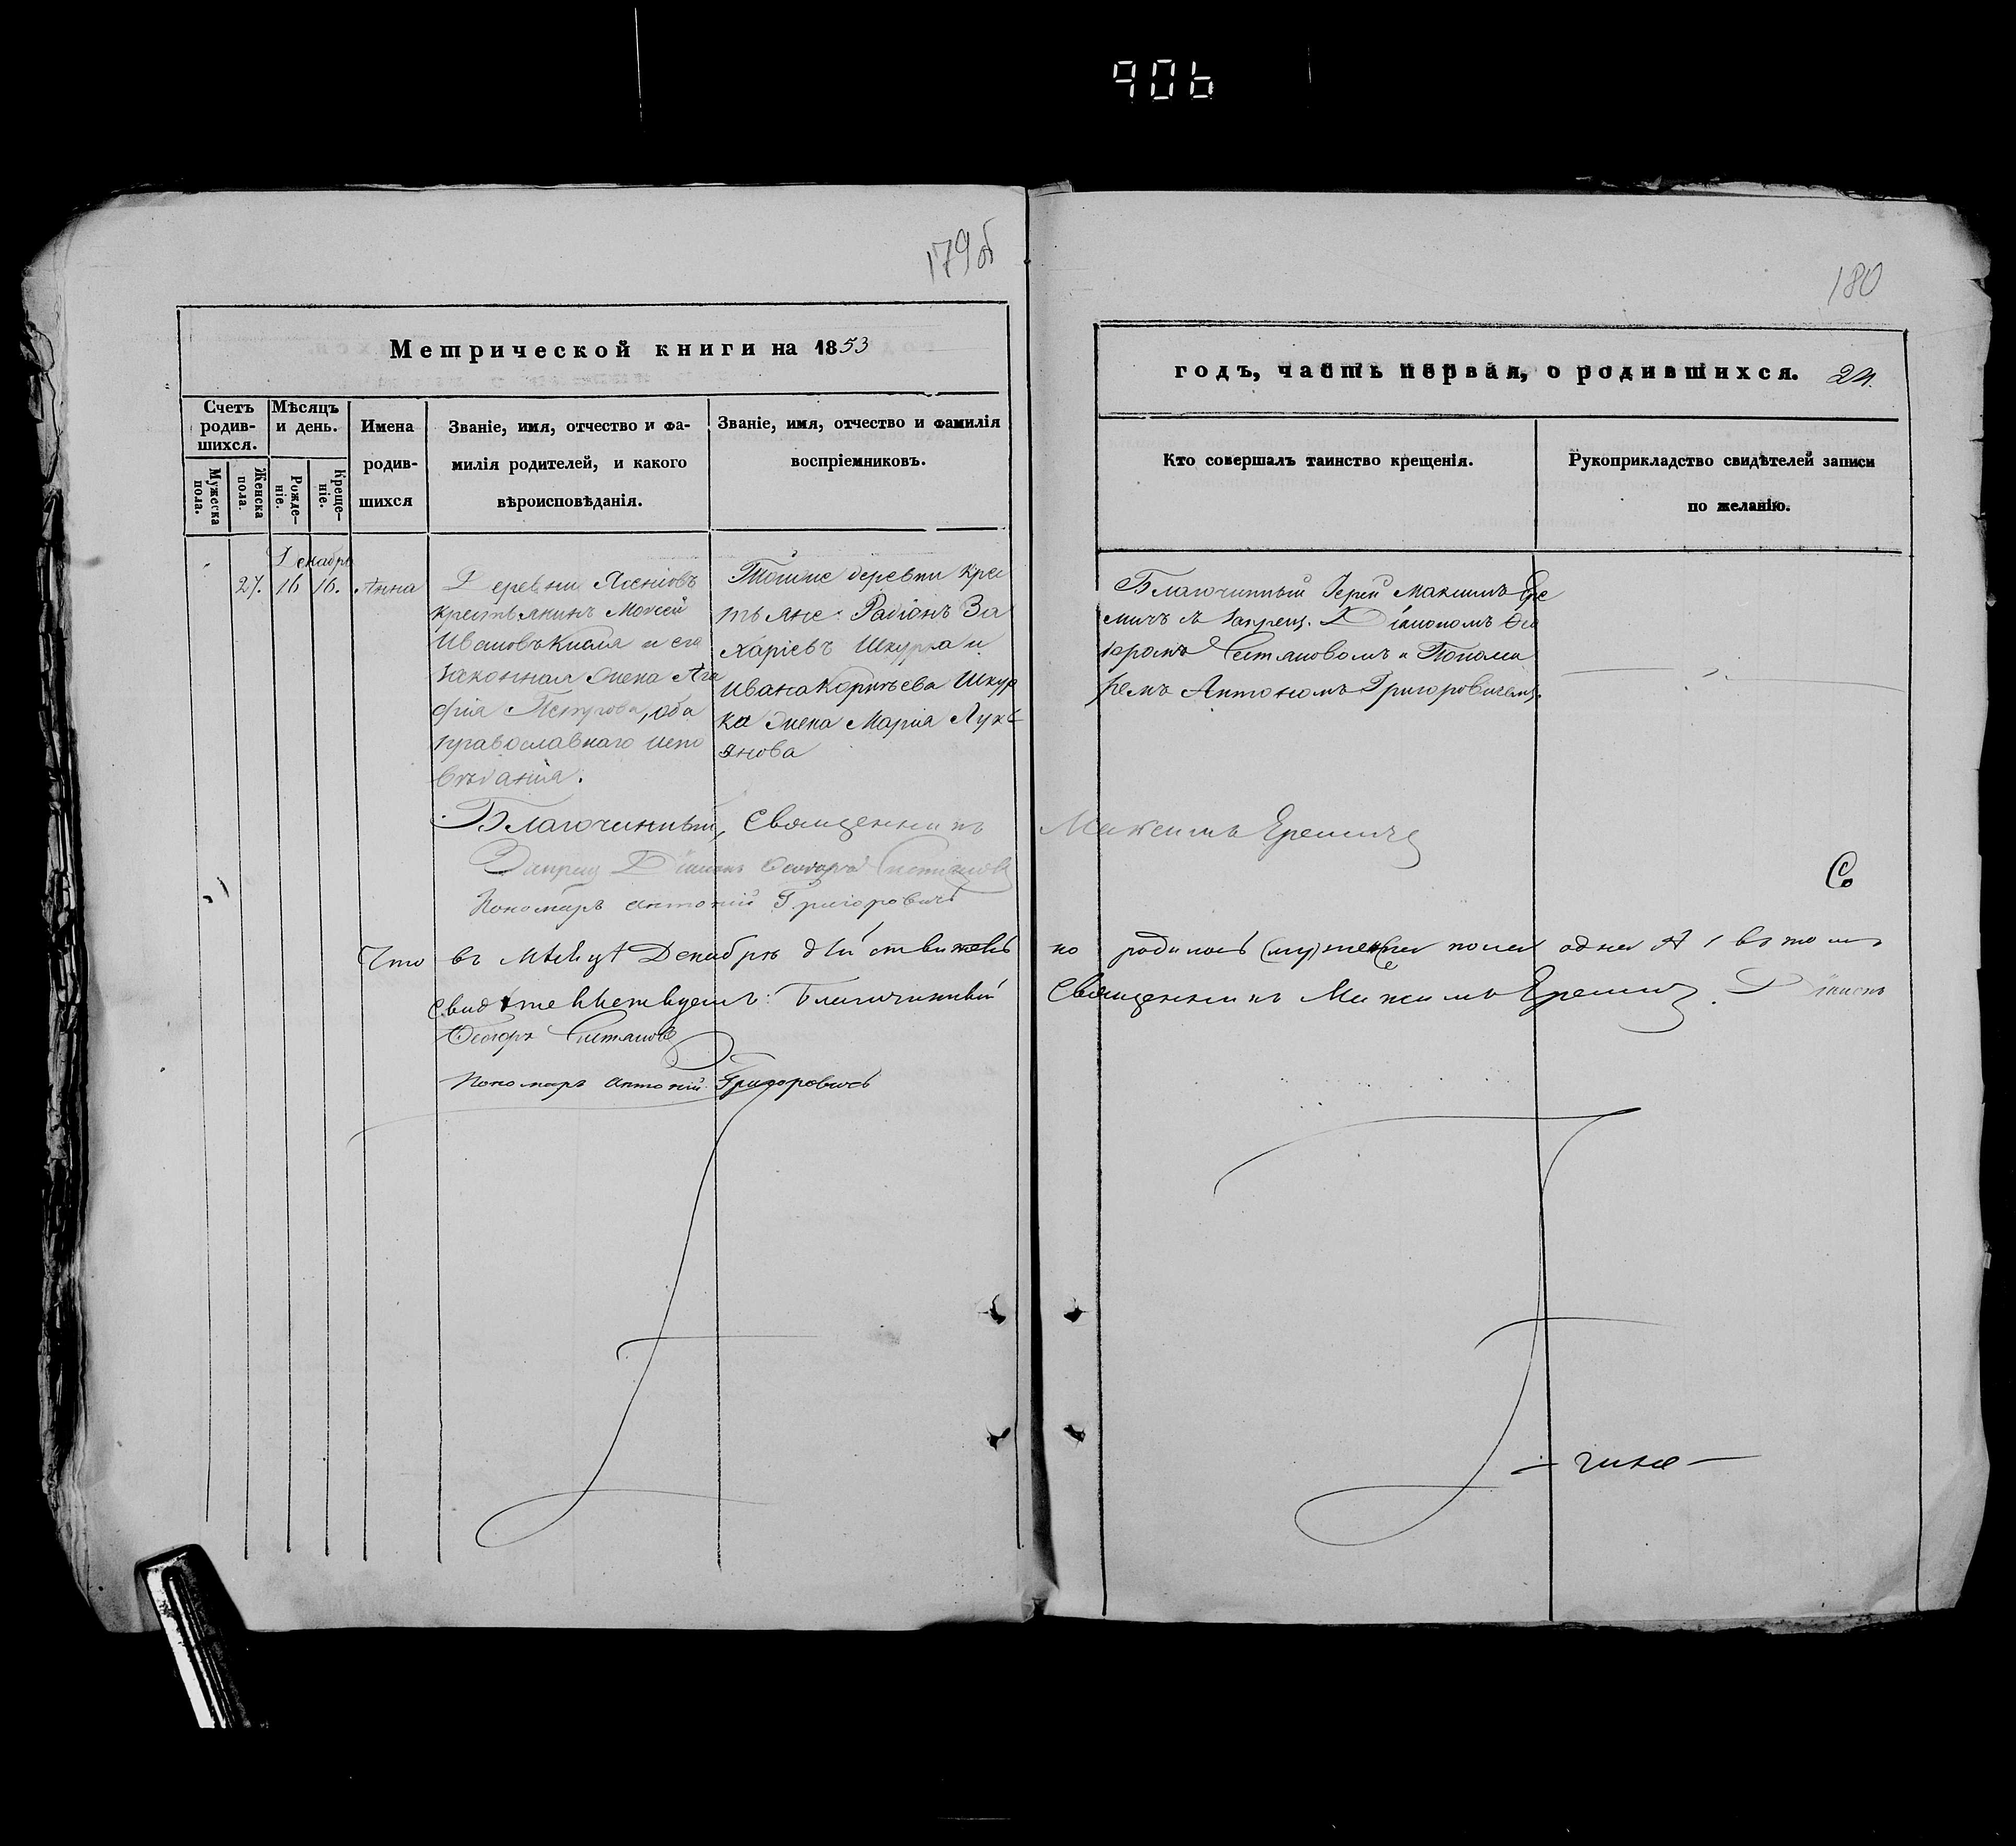 906
179об
180
Метрической книги на 1853
годъ, часть первая, о родившихся. 24.
Счетъ родив-шихся.
Мужеска пола.
Женска пола.
Мѣсяцъ и день.
Рожде-ніе.
Креще-ніе.
Имена
родив-
шихся
Званіе, имя, отчество и фа-
милія родителей, и какого
вѣроисповѣданія.
Званіе, имя, отчество и фамилія
воспріемниковъ.
Кто совершалъ таинство крещенія.
Рукоприкладство свидѣтелей записи
по желанію.
Декабрь
27. 16 16. Анна
Деревни Ясеніовъ
крестьянинъ Моѵсей
Ивановъ Княля и его
законная жена Ага
фія Петрова, оба
православнаго испо
вѣданія.
Тойже деревни крес
тьяне: Радіонъ За
харіевъ Шкурка и
Ивана Корнѣева Шкур
ка жена Марія Лукь
янова
Благочинный Іерей Максимъ Ере
мичъ съ запрещ. Діакономъ Ѳео
доромъ и Понома
ремъ Антономъ Григоровичемъ.
Благочинный, Священникъ Максимъ Еремичъ
Запрещ Діаконъ Ѳеодоръ
Пономарь Антоній Григоровичъ
Что въ мѣсяцѣ Декабрѣ дѣйствитель но родилось (му) женска пола одна А 1 въ томъ
свидѣтельствуемъ: Благочинный Священникъ Максимъ Еремичъ. Діаконъ
Ѳеодоръ
Пономарь Антоній Григоровичъ